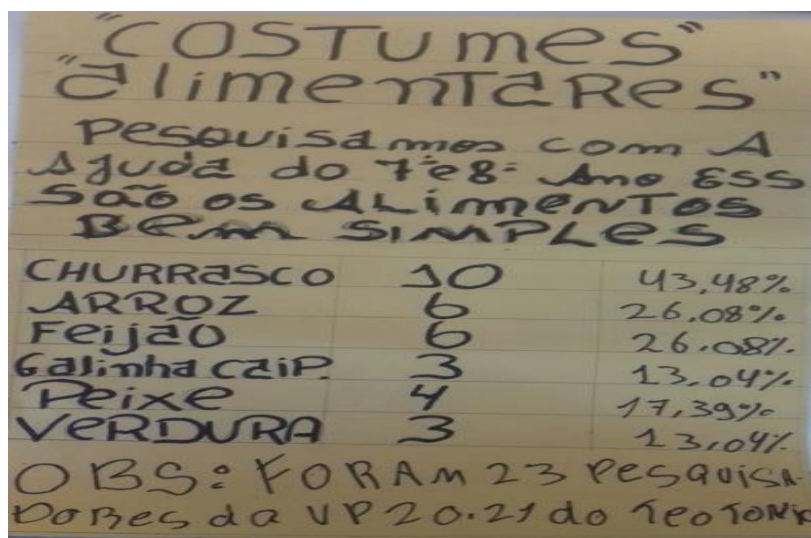 "COSTUmes"
"alimenTaRes"
Pesquisamos com A
Ajuda do 7ºe8º Ano ESS
São os ALimenTos
Bem SIMPLes
CHURRasCO 10 43,48%
ARROZ 6 26,08%
Feijão 6 26,08%
Galinha CaiP. 3 13,04%
Peixe 4 17,39%
VeRDURA 3 13,04%
OBS: FORAM 23 Pesquisa
DoRes da VP20.21 do TeoToni